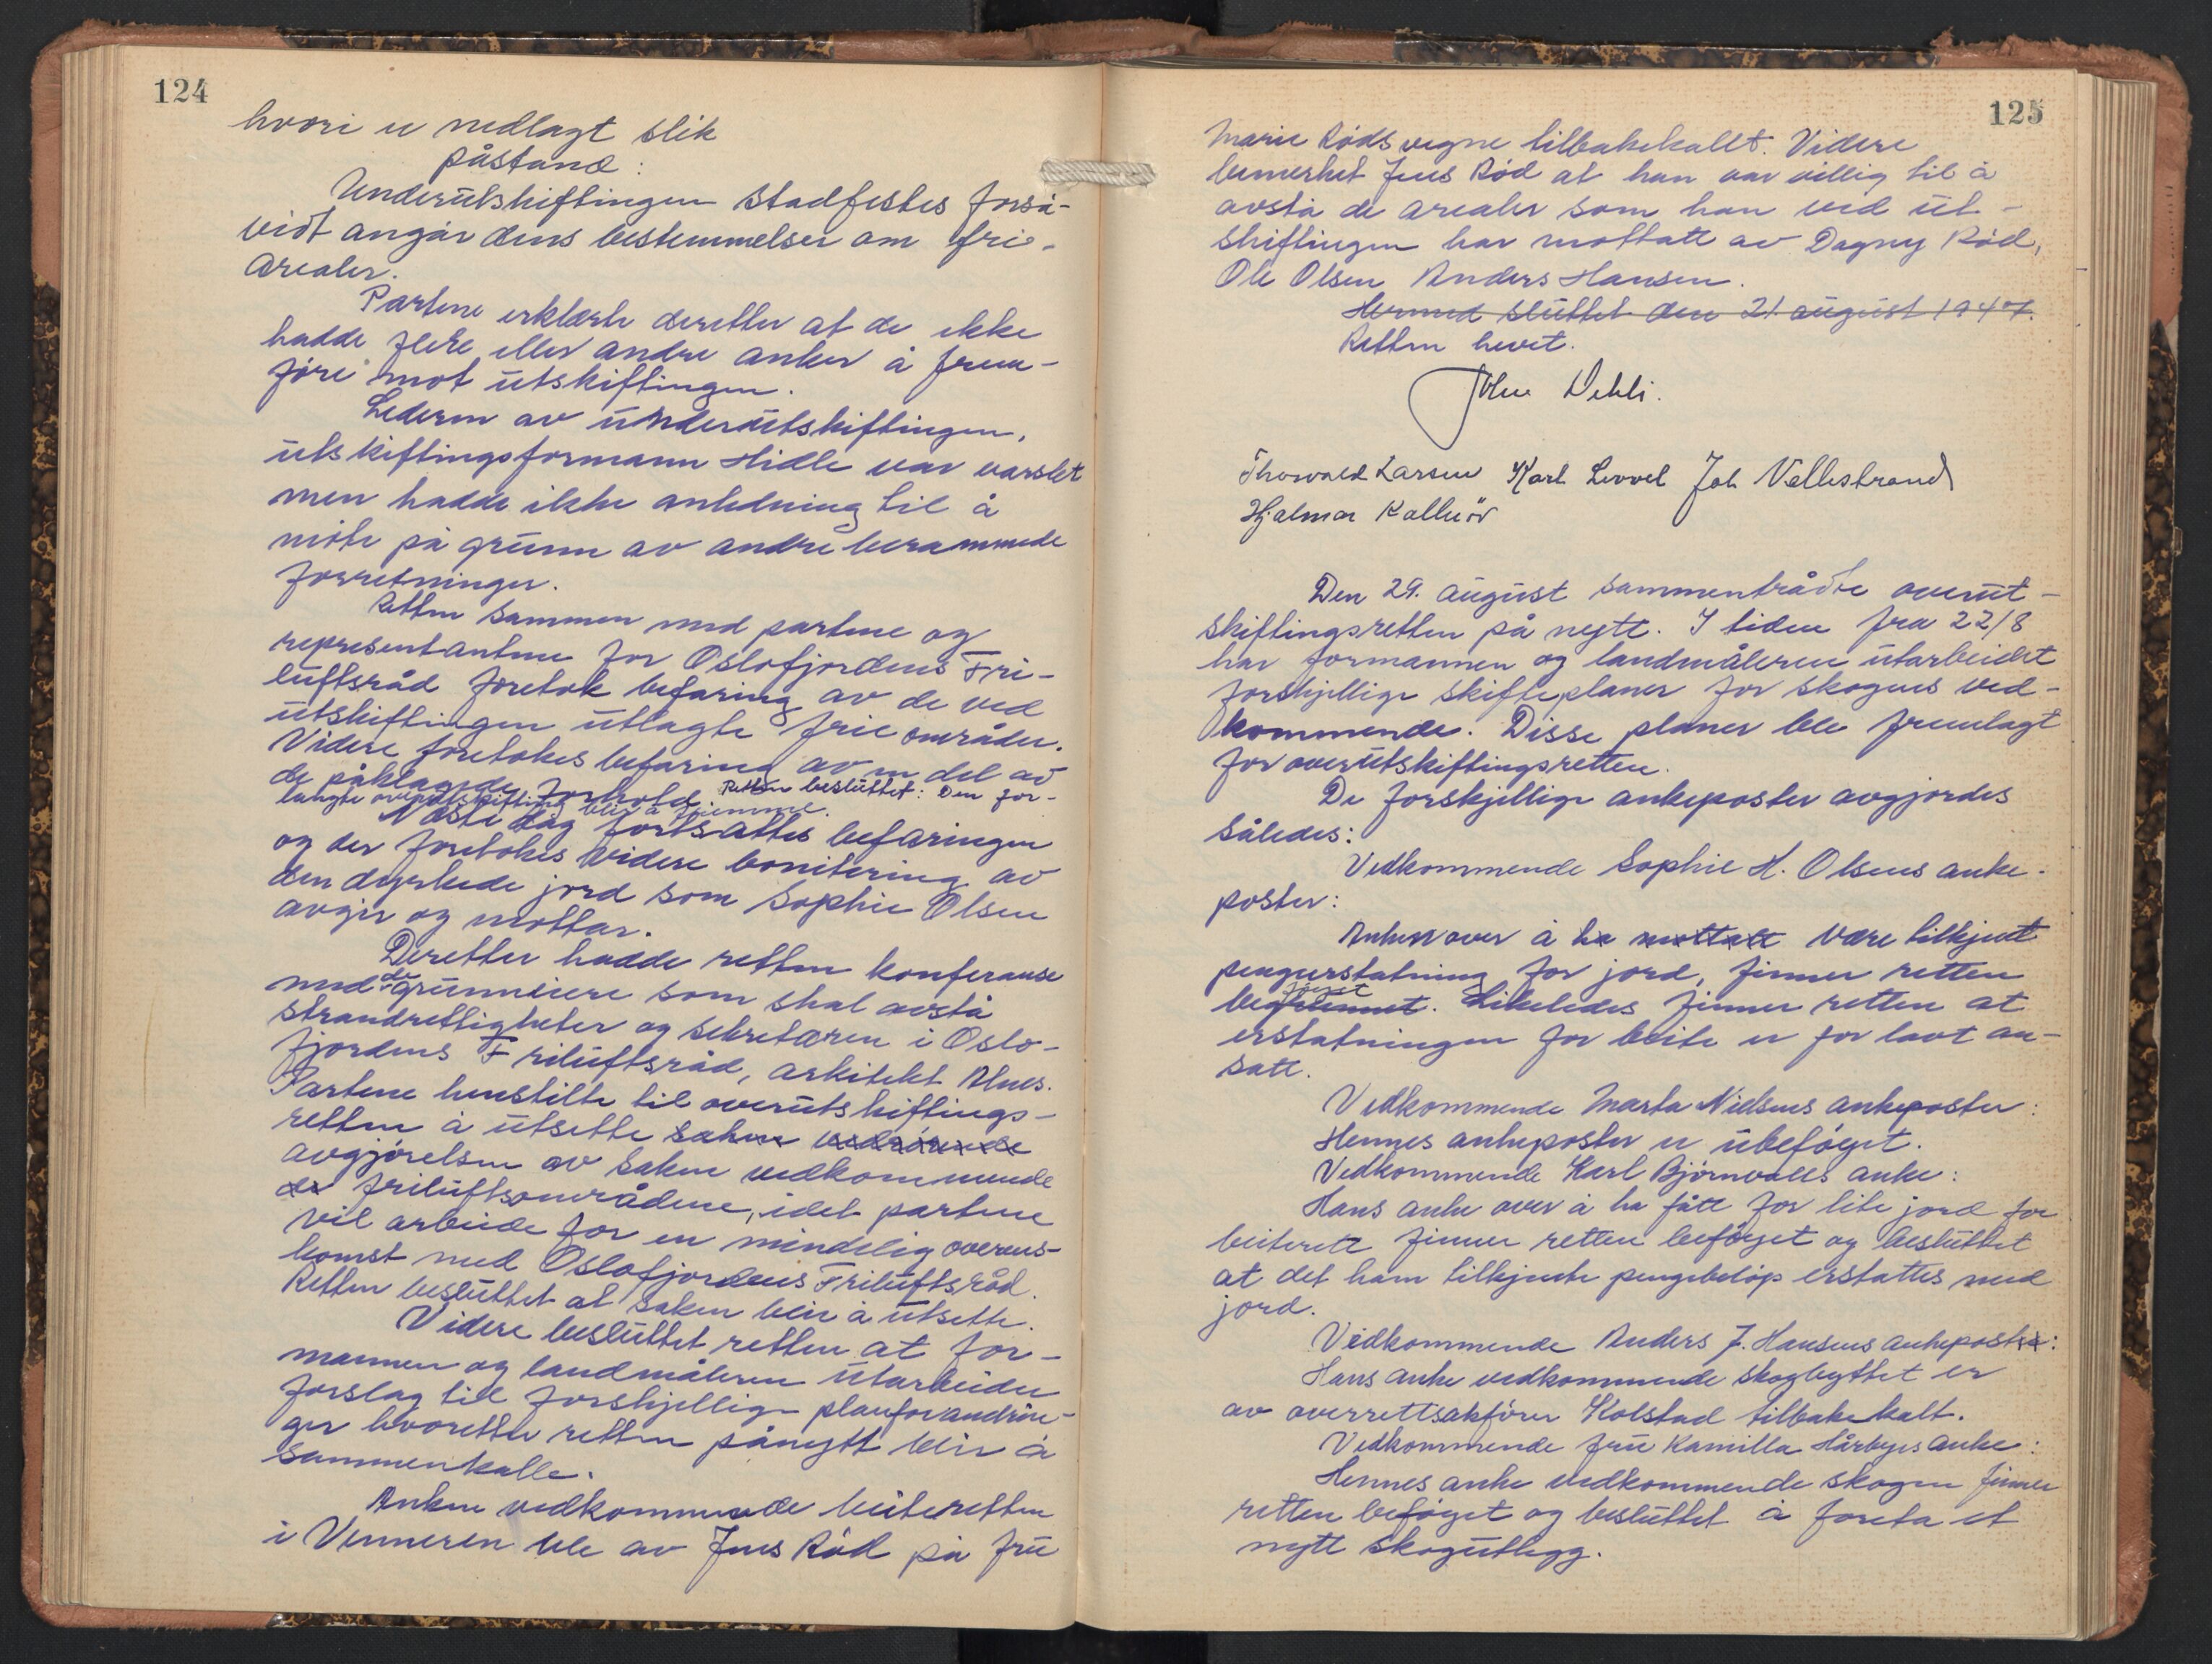 124
hvori er nedlagt slik
påstand:
Underutskiftingen stadfestes forså-
vidt angår dens bestemmelser om fri-
arealer.
Partene erklærte deretter at de ikke
hadde flere eller andre anker å frem-
føre mot utskiftingen.
Lederen av underutskiftingen,
utskiftingsformann Hidle var varslet
men hadde ikke anledning til å
møte på grunn av andre berammede
forretninger.
Retten sammen med partene og
representantene for Oslofjordens Fri-
luftsråd foretok befaring av de ved
utskiftingen utlagte frie områder.
Videre foretokes befaring av en del av
de påklagede forhold. Retten besluttet: Den for-
langte overutskifting blir å fremme.
Neste dag fortsattes befaringen
og der foretokes videre bonitering av
den dyrkede jord som Sophie Olsen
avgir og mottar.
Deretter hadde retten konferanse
med de grunneiere som skal avstå
strandrettigheter og sekretæren i Oslo-
fjordens Friluftsråd, arkitekt Alnes.
Partene henstilte til overutskiftings-
retten å utsette saken vedrørende
avgjørelsen av saken vedkommende
de friluftsområdene, idet partene
vil arbeide for en mindelig overens-
komst med Oslofjordens Friluftsråd.
Retten besluttet at saken blir å utsette.
Videre besluttet retten at for-
mannen og landmåleren utarbeider
forslag til forskjellige planforandrin-
ger hvoretter retten pånytt blir å
sammenkalle.
Anken vedkommende beiteretten
i Venneren ble av Jens Rød på fru
125
Marie Røds vegne tilbakekallt. Videre
bemerket Jens Rød at han var villig til å
avstå de arealer som han ved ut-
skiftingen har mottatt av Dagny Rød,
Ole Olsen Anders Hansen.
Hermed sluttet den 21 august 1947.
Retten hevet.
John Dehli.
Thorvald Larsen Karl Lovvel Joh Vellestrand
Hjalmar Kalleör
Den 29. august sammentrådte overut-
skiftingsretten på nytt. I tiden fra 22/8
har formannen og landmåleren utarbeidet
forskjellige skifteplaner for skogens ved-
kommende. Disse planer ble fremlagt
for overutskiftingsretten.
De forskjellige ankeposter avgjordes
således:
Vedkommende Sophie H. Olsens anke-
poster:
Anken over å ha mottatt være tilkjent
pengeerstatning for jord, finner retten
begrunnet føiet. Likeledes finner retten at
erstatningen for beite er for lavt an-
satt.
Vedkommende Marta Nielsens ankeposter:
Hennes ankeposter er ubeføyet.
Vedkommende Karl Bjørnvalls anke:
Hans anke over å ha fått for lite jord for
beiterett finner retten beføyet og besluttet
at det ham tilkjente pengebeløp erstattes med
jord.
Vedkommende Anders J. Hansens ankeposter:
Hans anke vedkommende skogbyttet er
av overrettsakfører Kolstad tilbakekalt.
Vedkommende fru Kamilla Hårbyes anke:
Hennes anke vedkommende skogen finner
retten beføyet og besluttet å foreta et
nytt skogutlegg.